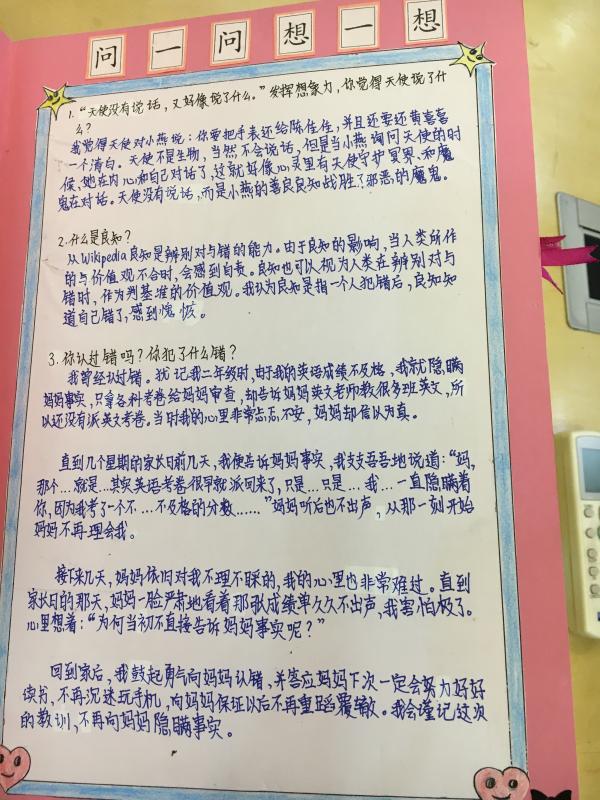 问一问想一想
1. “天使没有说话，又好像说了什么。”发挥想象力，你觉得天使说了什
么？
我觉得天使对小燕说：你要把手表还给陈佳佳，并且还要还黄喜喜
一个清白。天使不是生物，当然不会说话，但是当小燕询问天使的时
候，她在内心和自己对话了，这就好像心灵里有天使守护冥界、和魔
鬼在对话。天使没有说话，而是小燕的善良良知战胜了邪恶的魔鬼。
2.什么是良知？
从Wikipedia良知是辨别对与错的能力。由于良知的影响，当人类所作
的与价值观不合时，会感到自责。良知也可以视为人类在辨别对与
错时，作为判基准的价值观。我认为良知是指一个人犯错后，良知知
道自己错了，感到愧疚。
3.你认过错吗？你犯了什么错？
我曾经认过错。犹记我二年级时，由于我的英语成绩不及格，我就隐瞒
妈妈事实，只拿各科考卷给妈妈审查，却告诉妈妈英文老师教很多班英文，所
以还没有派英文考卷。当时我的心里非常忐忑不安，妈妈却信以为真。
直到几个星期的家长日前几天，我便告诉妈妈事实，我支支吾吾地说道：“妈，
那个...就是...其实英语考卷很早就派回来了，只是...只是...我...一直隐瞒着
你，因为我考了一个不...不及格的分数......”妈妈听后也不出声，从那一刻开始
妈妈不再理会我。
接下来几天，妈妈依旧对我不理不睬的，我的心里也非常难过。直到
家长日的那天，妈妈一脸严肃地看着那张成绩单久久不出声，我害怕极了。
心里想着：“为何当初不直接告诉妈妈事实呢？”
回到家后，我鼓起勇气向妈妈认错，并答应妈妈下次一定会努力好好
读书，不再沉迷玩手机，向妈妈保证以后不再重蹈覆辙。我会谨记这次
的教训，不再向妈妈隐瞒事实。